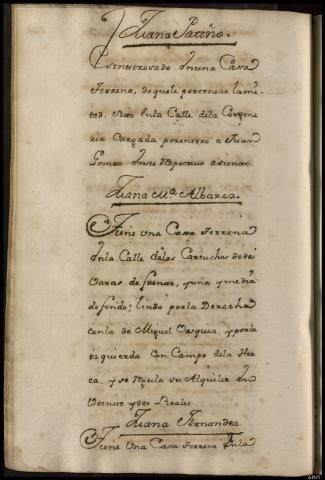 Juana Patiño.
Es interesado en una Cassa
Terrena, de que le pertenese la mi-
tad, sita en la Calle de la Correge-
ria Cargada por entero a Juan
Gomez en su respectivo asiento.
Juana Mª Albarez.
Tiene una Cassa Terrena
en la Calle de los Cartuchos de dos
Varas de frente, y una y media
de fondo; linda por la Derecha
con la de Miguel Vasques, y por la
izquierda con Campo de la Hor-
ca, y se regula su Alquiler en
Veinte y dos Reales
Juana Fernandez
Tiene una Cassa Terrena en la